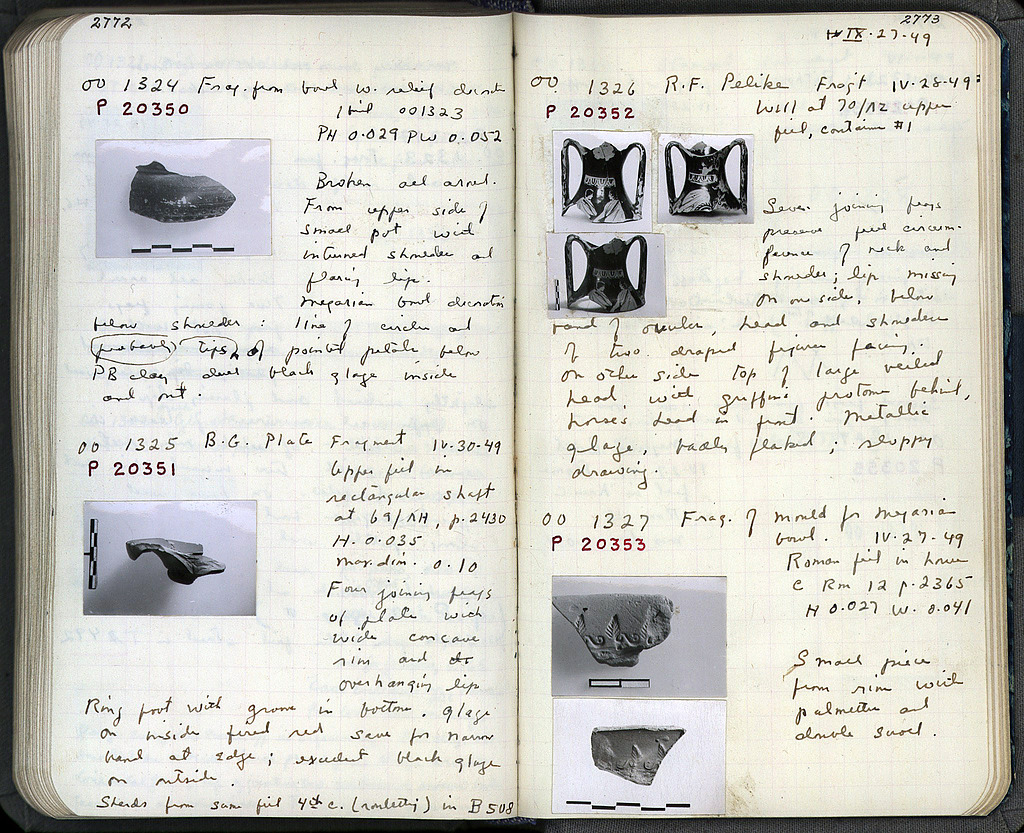 2772
OO 1324 Frag. from bowl w. relief decoratn
P 20350
001323
PH 0.029 PW 0.052
Broken all around.
From upper side of
small pot with
inturned shoulder and
flaring lip.
Megarian bowl decoration
below shoulder: line of circles and
probably tips of pointed petals below
PB clay dull black glaze inside
and out.
OO 1325 B.G. Plate Fragment IV-30-49
P 20351
Upper fill in
rectangular shaft
at 69/ΛH, p. 2430
H. 0.035
Max. dim. 0.10
Four joining frags
of plate with
wide concave
rim and
overhanging lip
Ring foot with groove in bottom. Glaze
on inside fired red save for narrow
band at edge; excellent black glaze
on outside.
Sherds from same fill 4th c. (rouletting) in B 508
2773
IX-27-49
OO 1326 R.F. Pelike Fragt IV-28-49
P 20352
Well at 70/ΛZ upper
fill, container #1
Seven joining frags
preserve full circum-
ference of neck and
shoulder; lip missing
On one side, below
band of ovules, head and shoulders
of two draped figures facing.
On other side top of large veiled
head, with griffin's protome behind,
horse's head in front. Metallic
glaze, badly flaked; sloppy
drawing.
OO 1327 Frag. of mould for Megarian
P 20353
bowl. IV-27-49
Roman fill in house
C Rm 12 p. 2365
H 0.027 W. 0.041
Small piece
from rim with
palmettes and
double scroll.